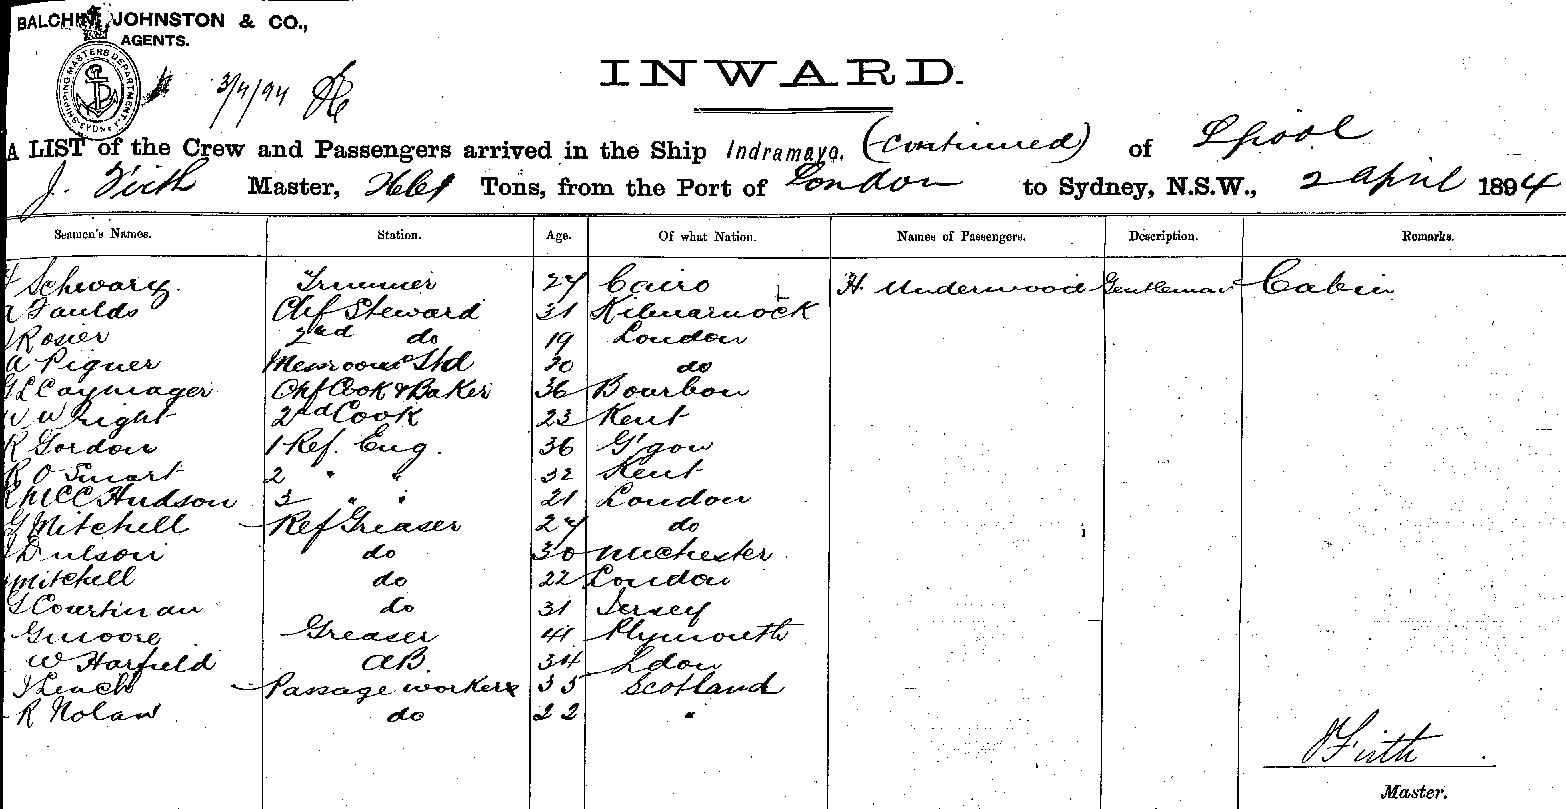 BALCHIN, JOHNSTON & CO.,
AGENTS.
SHIPPING MASTERS DEPARTMENT SYDNEY
3/4/94
INWARD.
A LIST of the Crew and Passengers arrived in the Ship Indramayo. (continued) of Lpool
J. Firth Master, Tons, from the Port of London to Sydney, N.S.W., 2 April 1894
Seamen's Names. Station. Age. Of what Nation. Names of Passengers. Description. Remarks.
Schwarz Trimmer 27 Cairo H Underwood Gentleman Cabin
Faulds Chf Steward 31 Kilmarnock
Rosier 2nd do 19 London
A Pigner Messroom Std 30 do
Caymager Chf Cook & Baker 36 Bourbon
W Wright 2nd Cook 23 Kent
R Gordon 1 Ref. Eng. 36 G'gow
R O Smart 2 " " 32 Kent
R McC Hudson 3 " " 21 London
G Mitchell Ref Greaser 27 do
do 30 Mnchester
Mitchell do 22 London
Courtman do 31 Jersey
G Moore Greaser 41 Plymouth
W Harfield AB. 34 Ldon
J Leach Passage workers 35 Scotland
R Nolan do 22 "
J Firth
Master.